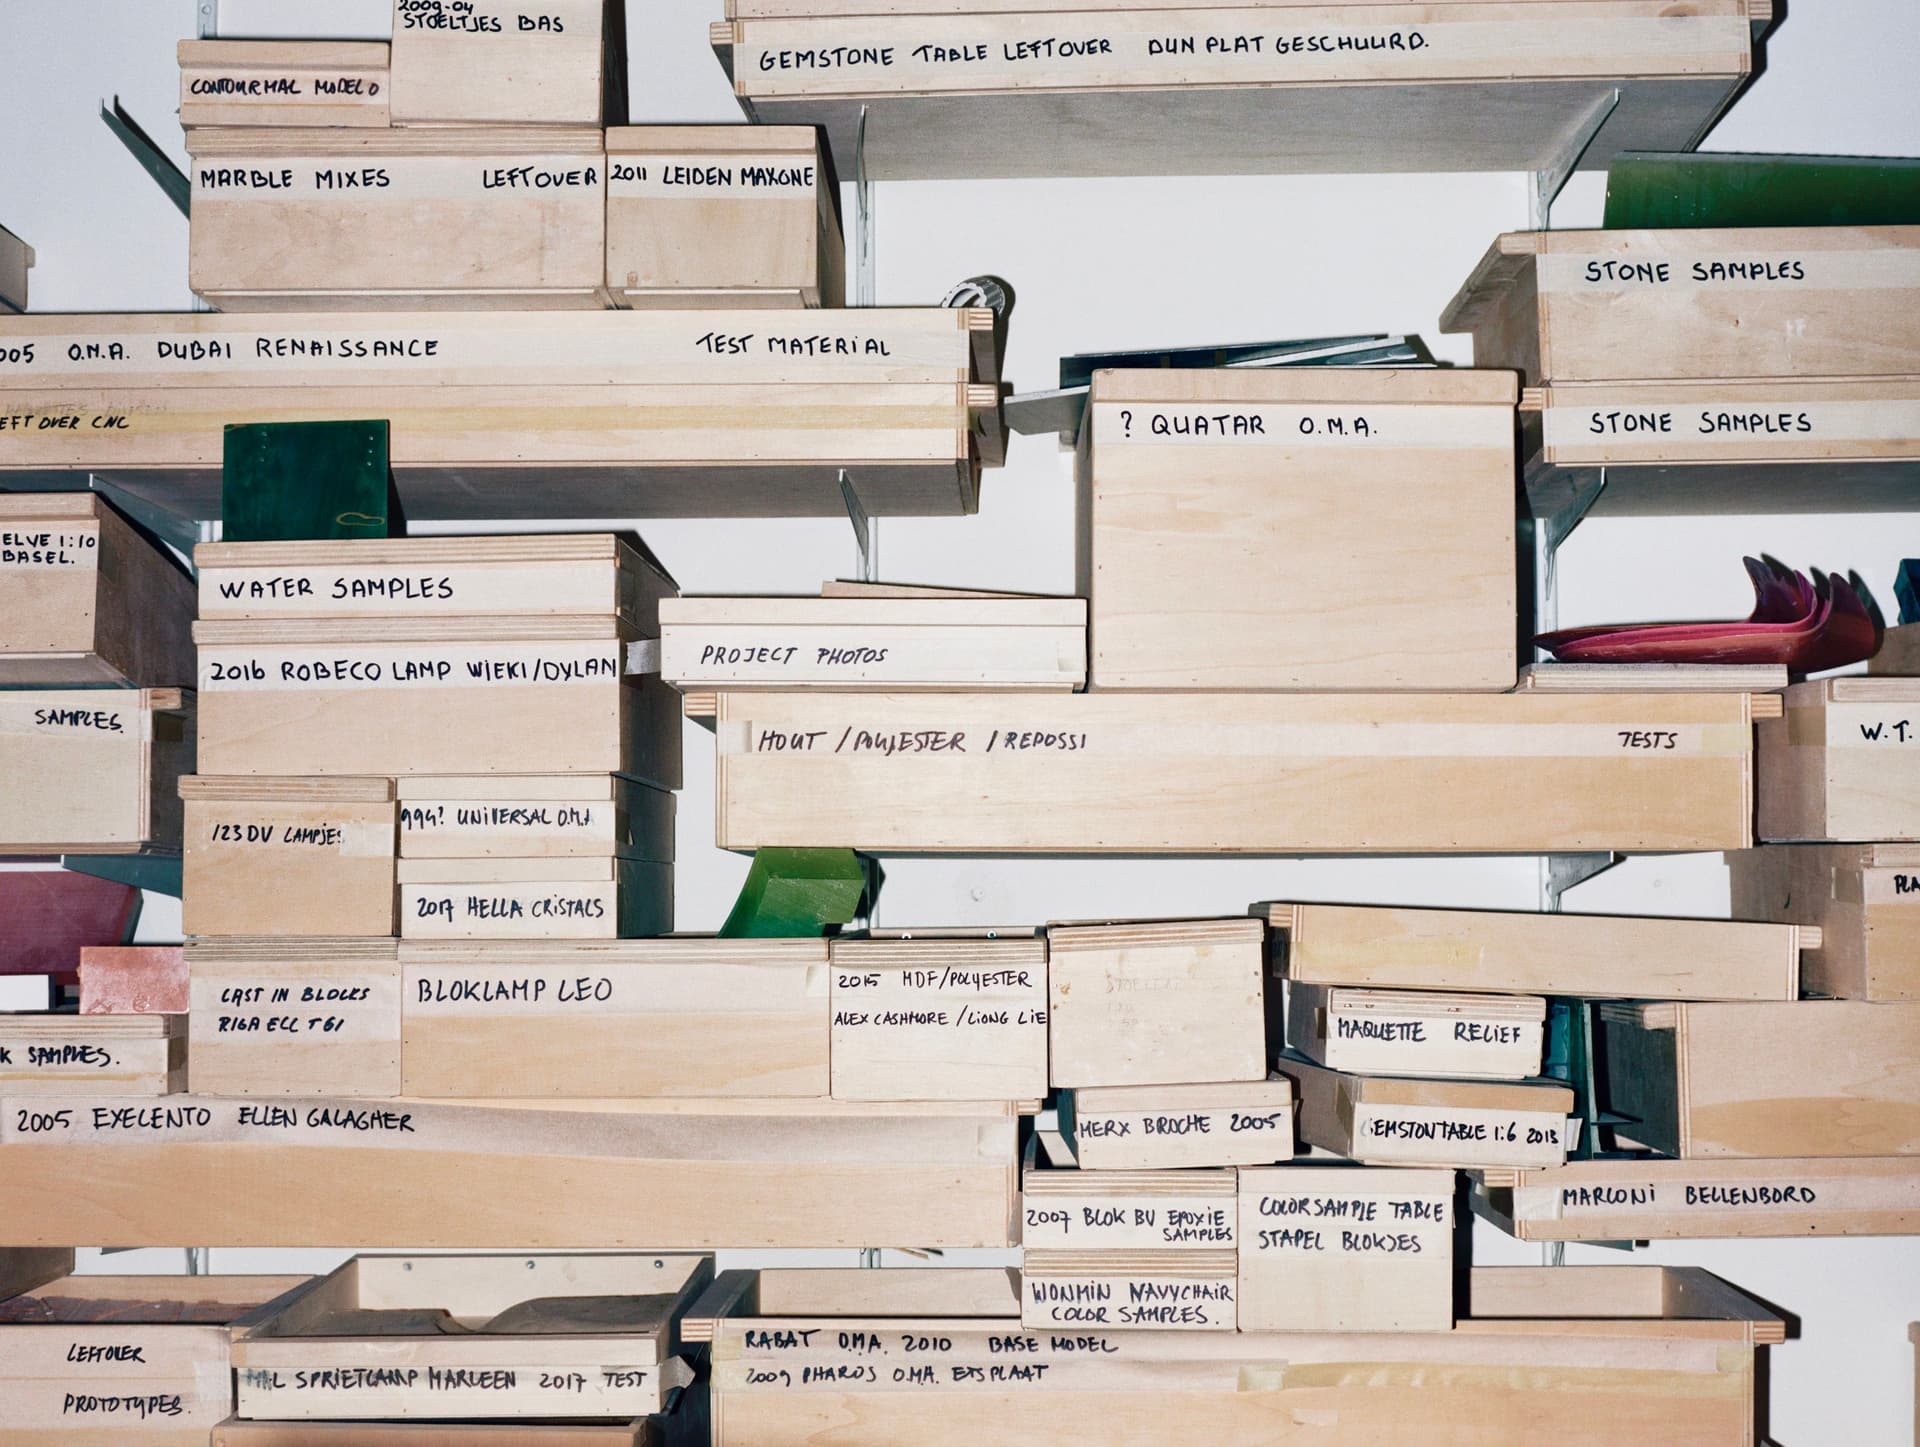 2009-04
STOELTJES BAS
CONTOURMAL MODEL O
GEMSTONE TABLE LEFTOVER DUN PLAT GESCHUURD.
MARBLE MIXES LEFTOVER
2011 LEIDEN MAXONE
STONE SAMPLES
005 O.M.A. DUBAI RENAISSANCE TEST MATERIAL
EFT OVER CNC
? QUATAR O.M.A.
STONE SAMPLES
ELVE 1:10
BASEL.
WATER SAMPLES
2016 ROBECO LAMP WIEKI/DYLAN
PROJECT PHOTOS
SAMPLES.
HOUT / POLYESTER / REPOSSI TESTS
W.T.
123 DV LAMPJES
994? UNIVERSAL O.M.A
2017 HELLA CRISTALS
PLA
CAST IN BLOCKS
RIGA ECC T61
BLOKLAMP LEO
2015 MDF/POLYESTER
ALEX CASHMORE / LIONG LIE
MAQUETTE RELIEF
K SAMPLES.
2005 EXELENTO ELLEN GALAGHER
MERX BROCHE 2005
GEMSTONTABLE 1:6 2013
2007 BLOK BV EPOXIE
SAMPLES
COLORSAMPLE TABLE
STAPEL BLOKJES
MARCONI BELLENBORD
WONMIN NAVYCHAIR
COLOR SAMPLES.
LEFTOVER
PROTOTYPES.
MAL SPRIETLAMP MARLEEN 2017 TEST
RABAT O.M.A. 2010 BASE MODEL
2009 PHAROS O.M.A. ETSPLAAT